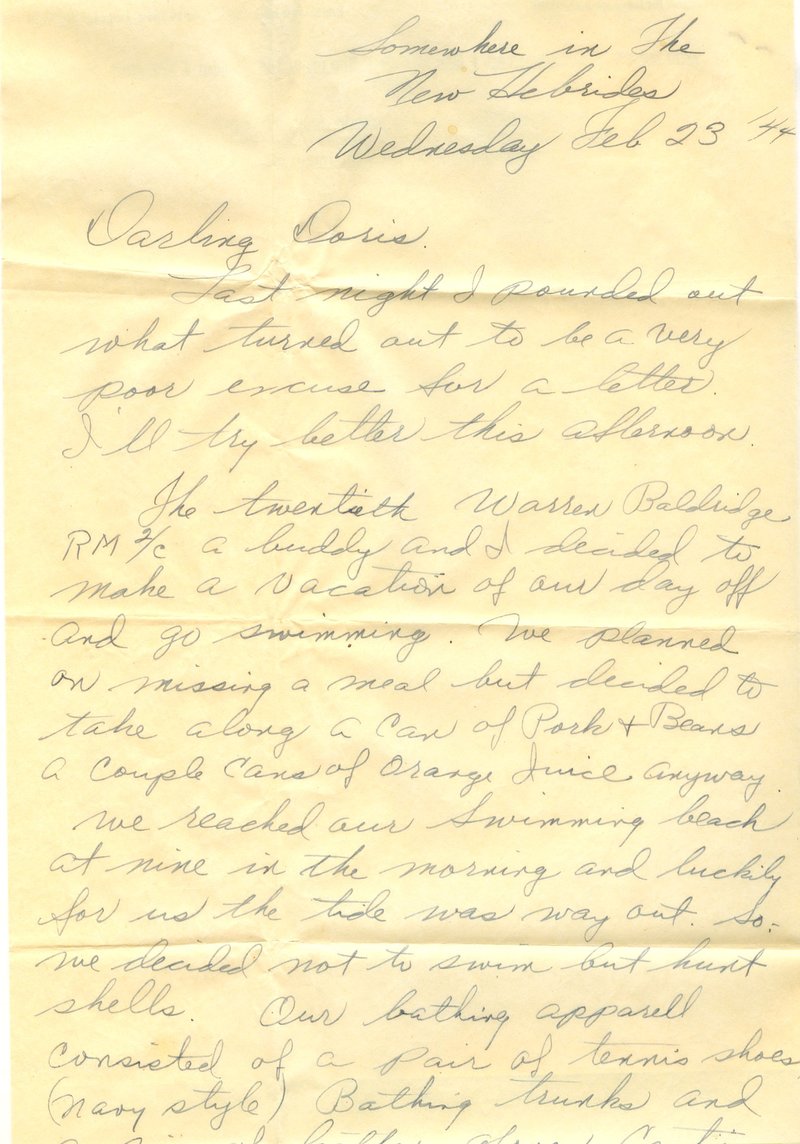 Somewhere in The
New Hebrides
Wednesday Feb 23 '44
Darling Doris.
Last night I pounded out
what turned out to be a very
poor excuse for a letter.
I'll try better this afternoon.
The twentieth Warren Baldridge
RM 2/c a buddy and I decided to
make a vacation of our day off
and go swimming. We planned
on missing a meal but decided to
take along a can of Pork & Beans
a couple cans of Orange Juice anyway.
We reached our swimming beach
at nine in the morning and luckily
for us the tide was way out. So.
we decided not to swim but hunt
shells. Our bathing apparell
consisted of a pair of tennis shoes,
(navy style) Bathing trunks and